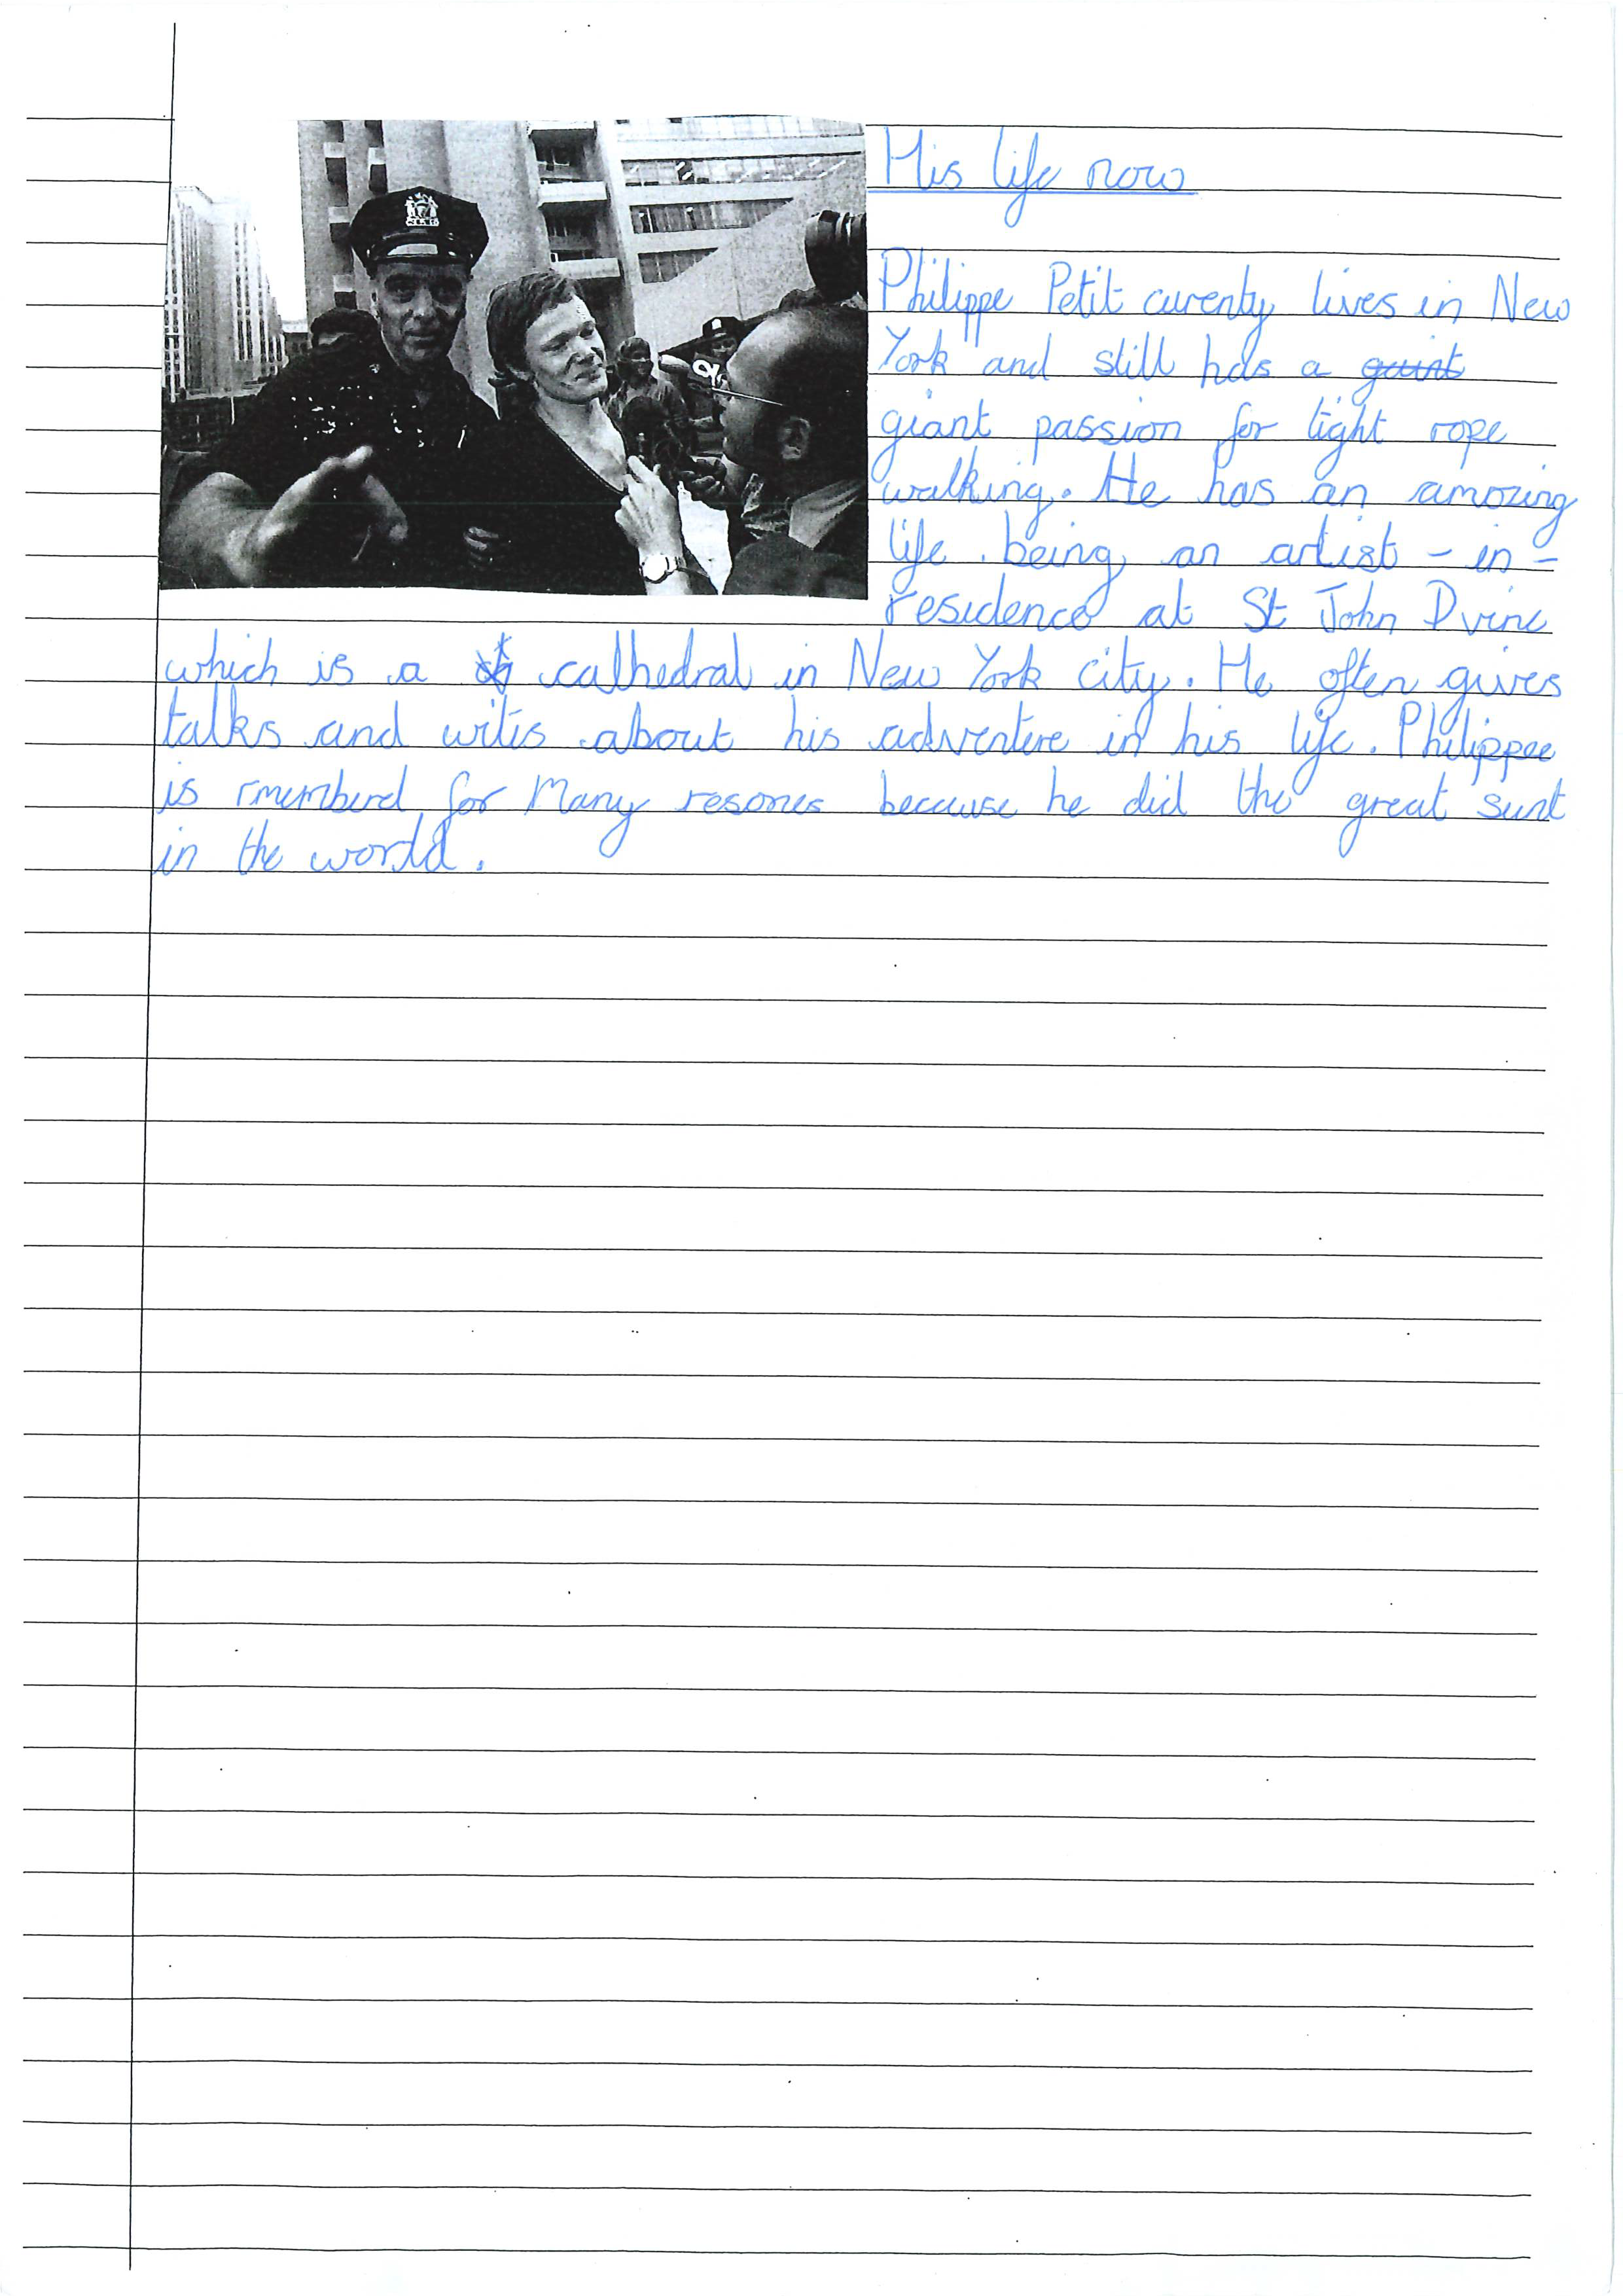 His life now
Philippe Petit curenty lives in New
York and still has a guint
giant passion for tight rope
walking. He has an amazing
life being an artist - in -
residence at St John Dvine
which is a cathedral in New York city. He often gives
talks and wites about his adventere in his life. Philippe
is rmemberd for Many resones because he did the great sunt
in the world.